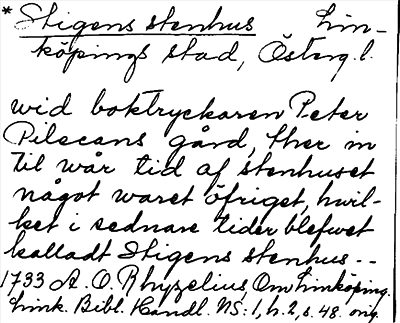 * Stigens stenhus Lin-
köpings stad, Österg. l.
wid boktryckaren Peter
Pilecans gård, ther in
til wår tid af stenhuset
något waret öfriget, hwil-
ket i sednare tider blefwet
kalladt Stigens stenhus--
1733 A. O. Rhyzelius Om Linköping.
Link. Bibl. Handl. NS: 1, h. 2, s. 48. orig.